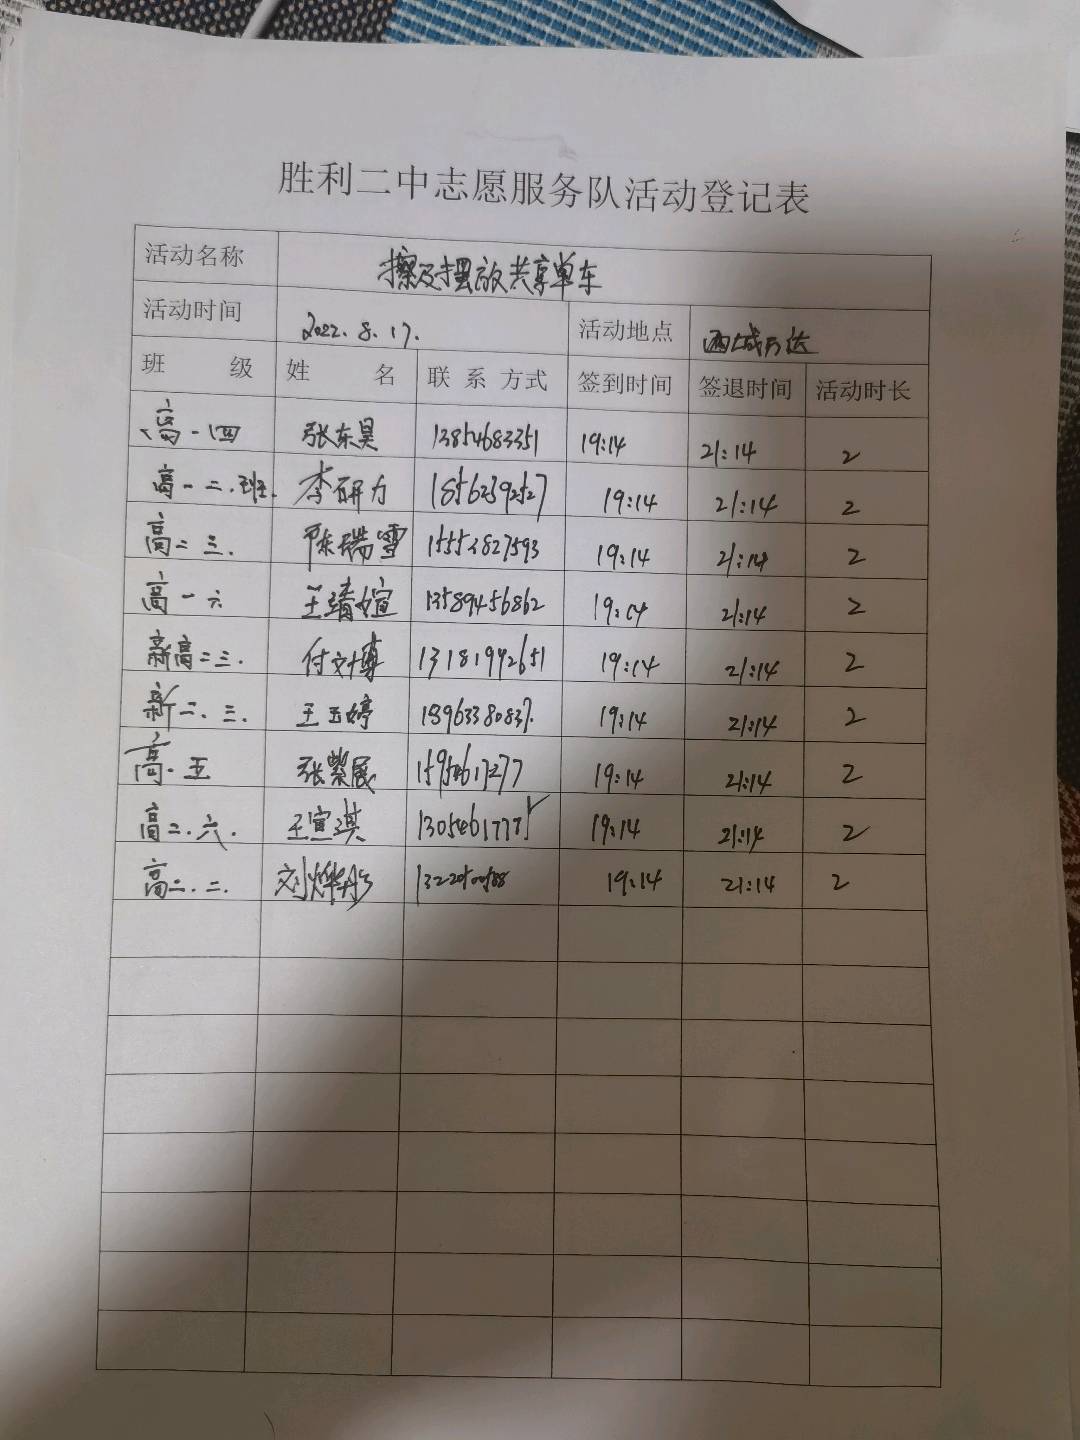 胜利二中志愿服务队活动登记表
活动名称 擦及摆放共享单车
活动时间 2022.8.17. 活动地点 西城万达
班 级 姓 名 联 系 方式 签到时间 签退时间 活动时长
高一四 张东昊 13854683351 19:14 21:14 2
高一二.班. 李研力 18562392527 19:14 21:14 2
高二三. 陈瑞雪 15552827593 19:14 21:14 2
高一六 王靖媗 13589456862 19:14 21:14 2
新高二三. 付文博 13181992651 19:14 21:14 2
新二.三. 王玉婷 19:14 21:14 2
高.五 张紫展 15954617277 19:14 21:14 2
高二.六. 王宣淇 13054617775 19:14 21:14 2
高二.二. 刘烨彤 19:14 21:14 2